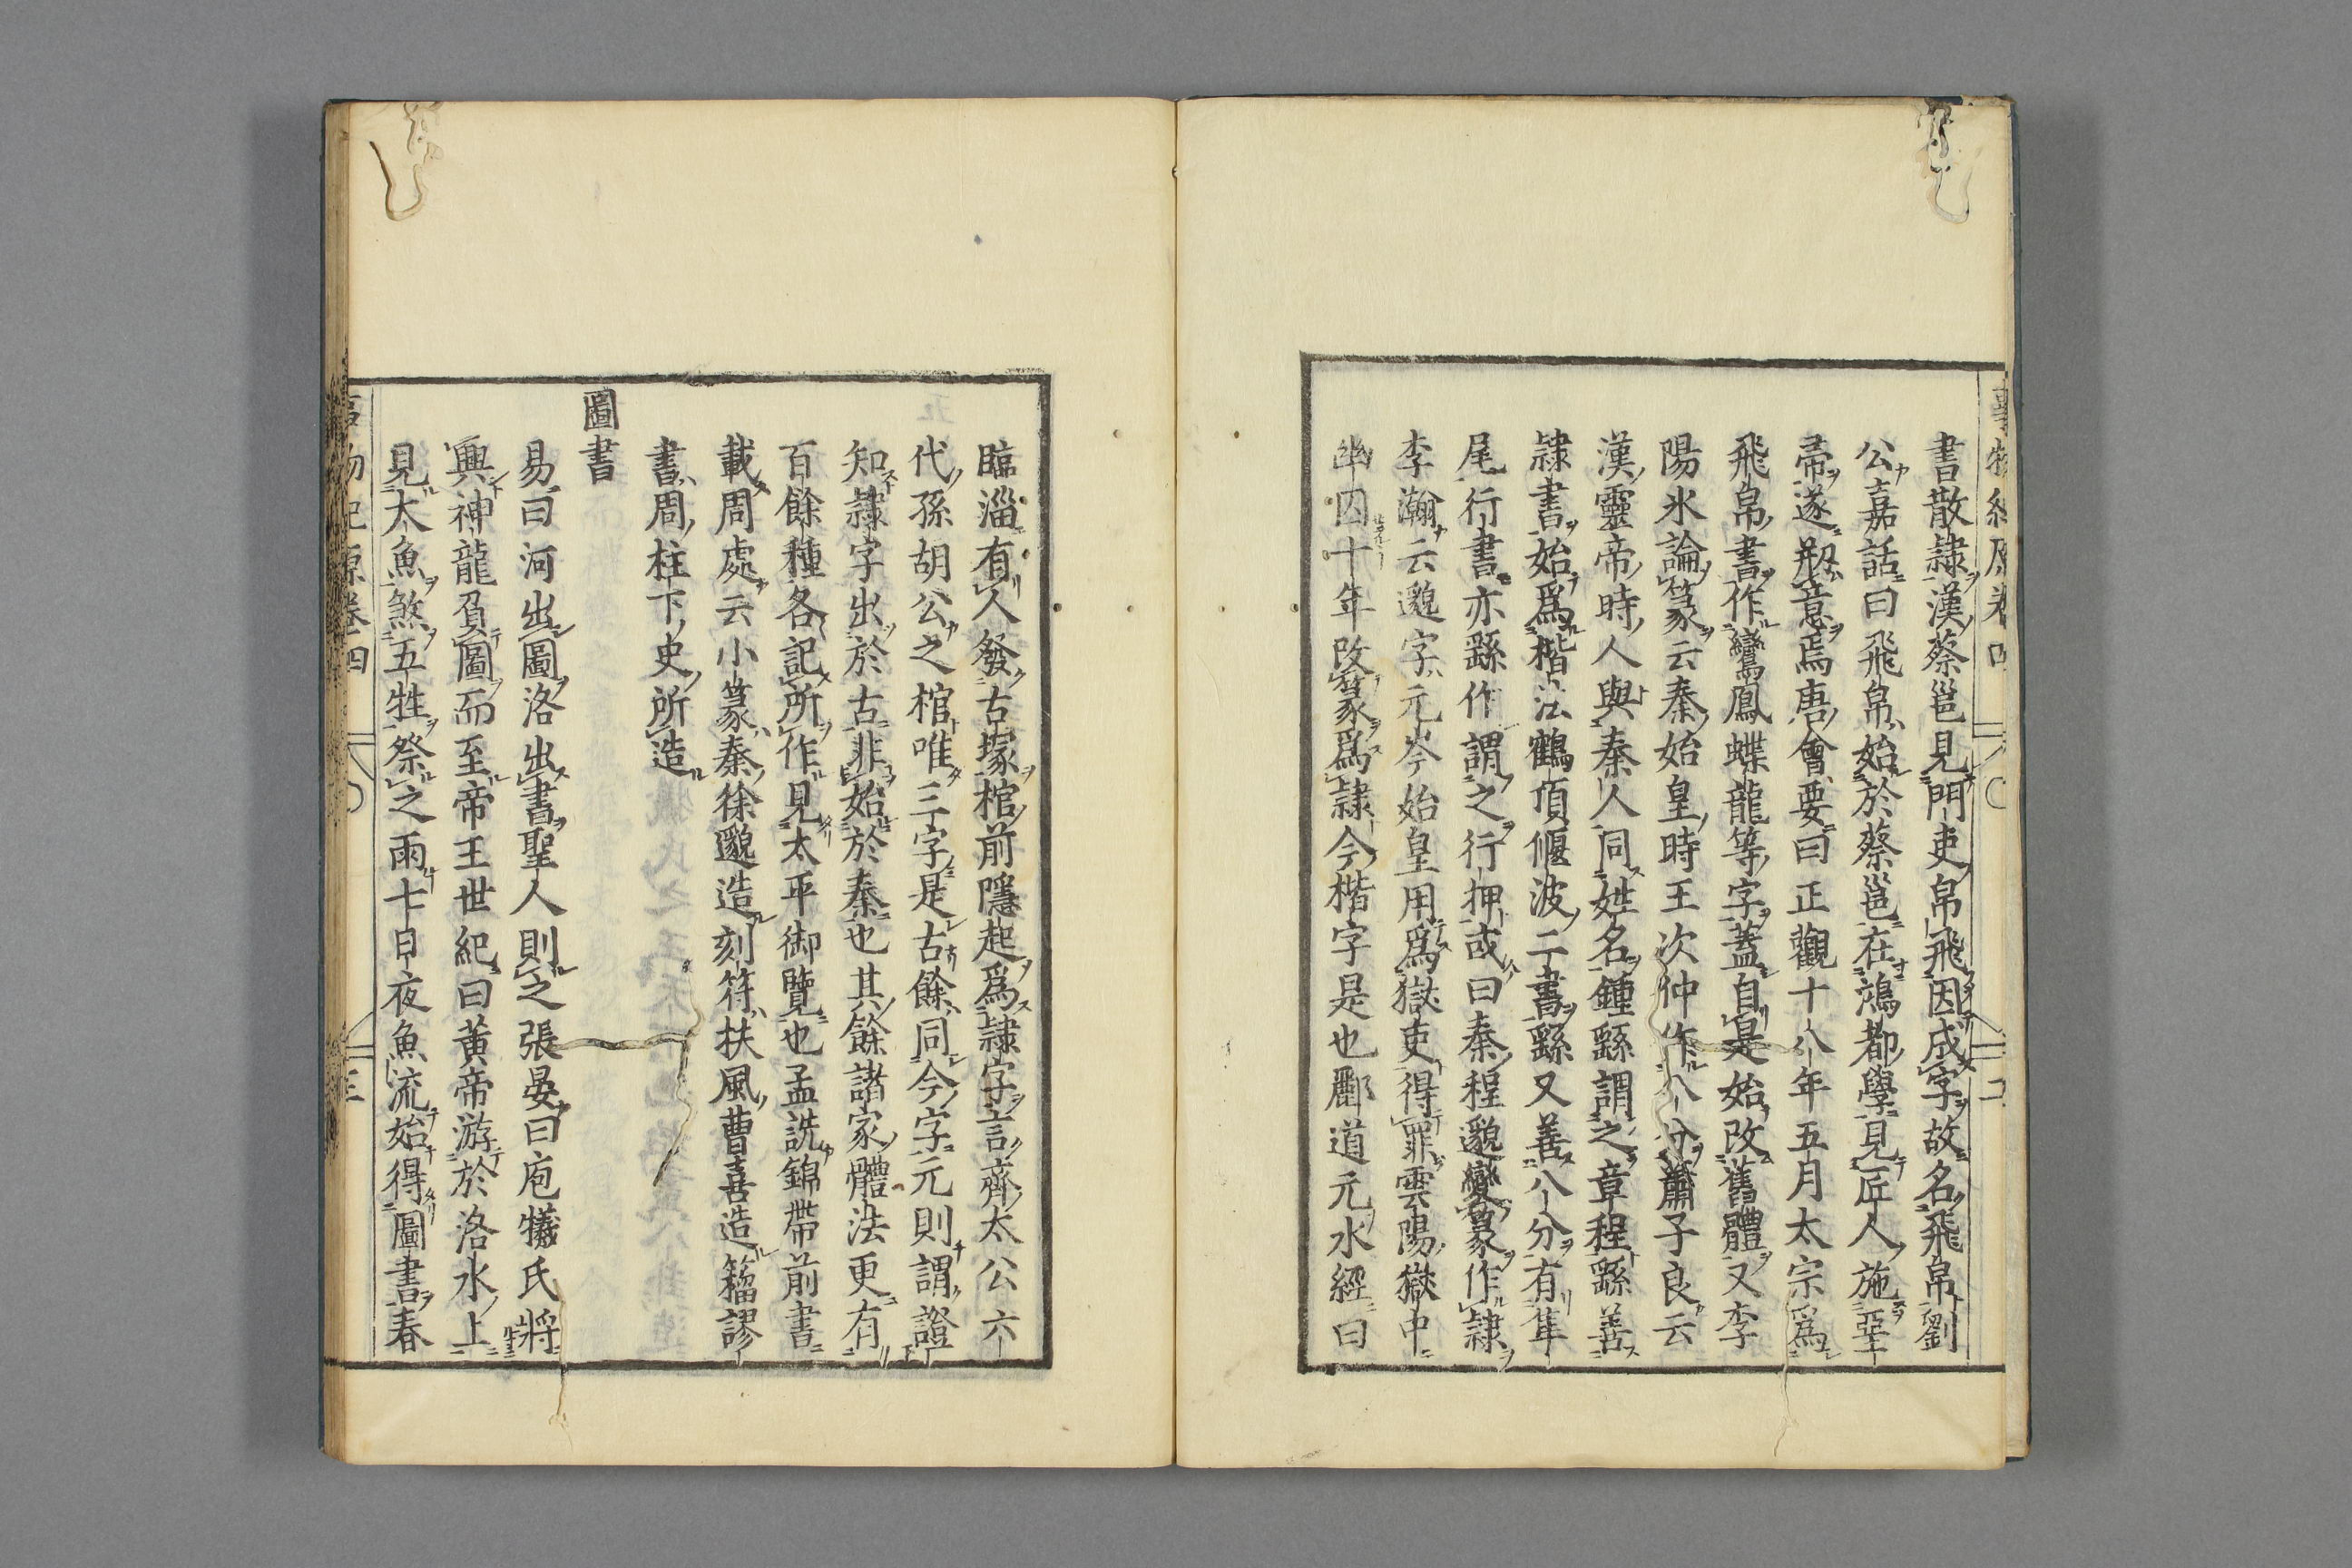 書散隷漢蔡邕見門吏帛飛因成字故名飛帛劉
公嘉話曰飛帛始於蔡邕在鴻都學見匠人施堊
帚遂刱意焉唐會要曰正觀十八年五月太宗爲
飛帛書作鸞鳳蝶龍等字蓋自是始改舊體又李
陽氷論篆云秦始皇時王次仲作八分蕭子良云
漢靈帝時人與秦人同姓名鍾繇謂之章程繇善
隷書始爲楷法鶴頂偃波二書繇又善八分有隼
尾行書亦繇作謂之行押或曰秦程邈變篆作隷
李瀚云邈字元岑始皇用爲獄吏得罪雲陽獄中
幽囚十年改篆爲隷今楷字是也酈道元水經曰
臨淄有人發古塚棺前隱起爲隷字言齊太公六
代孫胡公之棺唯三字是古餘同今字元則謂證
知隷字出於古非始於秦也其餘諸家體法更有
百餘種各記所作見太平御覽也孟詵錦帶前書
載周處云小篆秦徐邈造刻符扶風曹喜造籀謬
書周柱下史所造
圖書
易曰河出圖洛出書聖人則之張晏曰庖犧氏將
興神龍負圖而至帝王世紀曰黃帝游於洛水上
見大魚煞五牲祭之雨七日夜魚流始得圖書春
事物紀原卷四